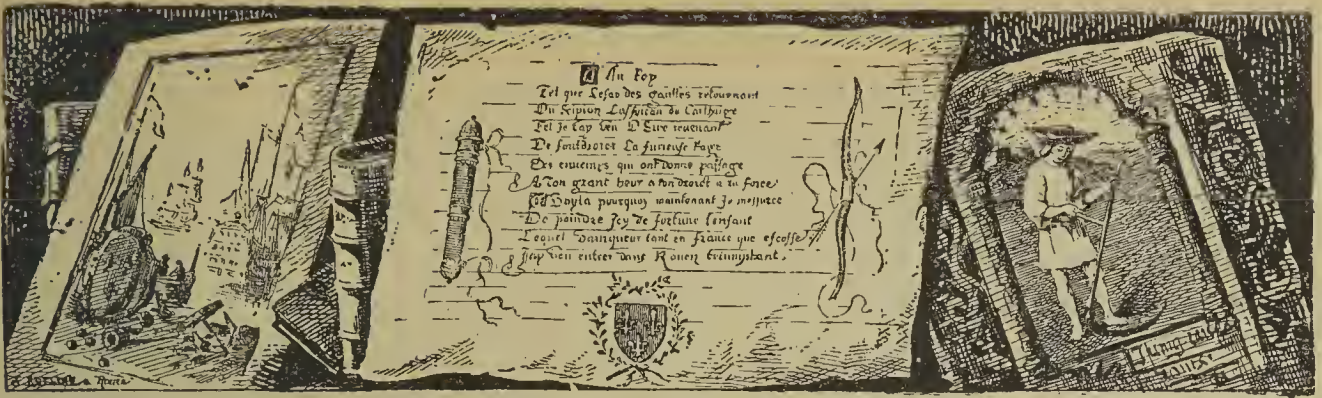 Au Roy
Tel que Cesar des Gaulles retournant
Ou Scipion Laffrican de Carthage
Tel Je tay veu Deure revenant
De
La furieuse
Des ennemis qui ont donne passage
A ton grant heur a ton droict a ta force
Voyla pourquoy maintenant Je mefforce
De poindre Jcy de fortune lenfant
Lequel Vainqueur tant en france que escosse
Jay veu entrer dans Rouen triumphant.